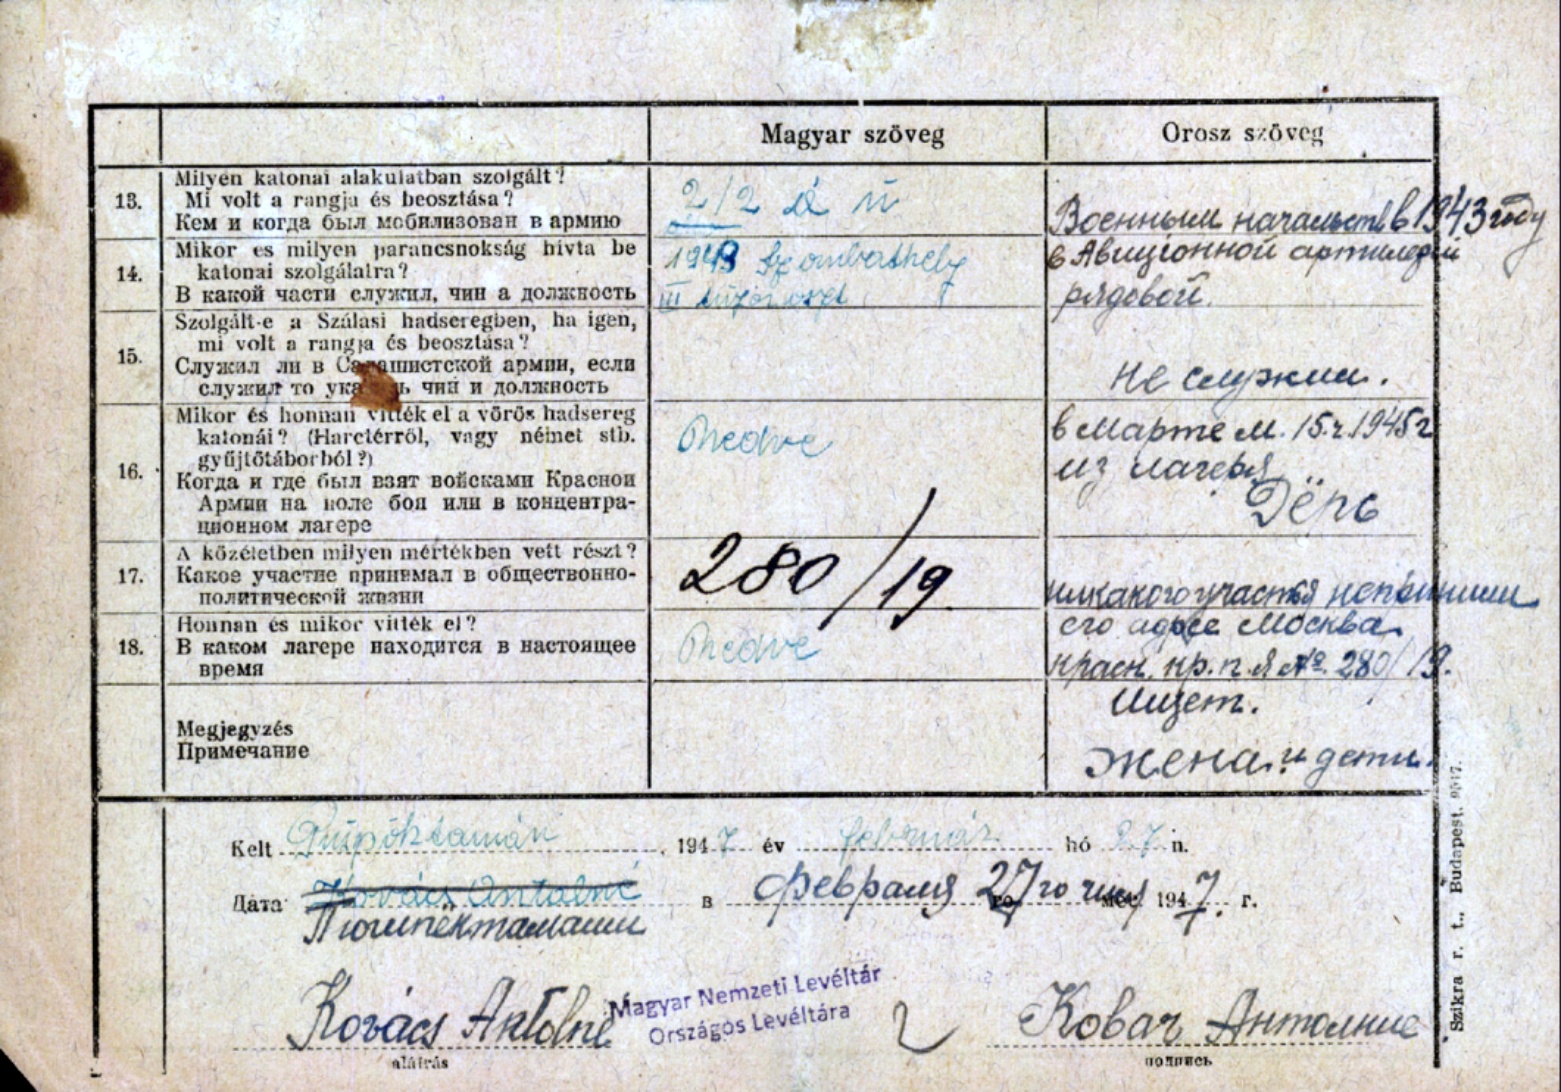 Magyar szöveg
Orosz szöveg
13.
Milyen katonai alakulatban szolgált?
Mi volt a rangja és beosztása?
Кем и когда был мобилизован в армию
2/2
Военными начальств в 1943 году
14.
Mikor és milyen parancsnokság hívta be
katonai szolgálatra?
В какой части служил, чин а должность
1943 Szombathely
III
в Авиционной артилерии
рядовой.
15.
Szolgált-e a Szálasi hadseregben, ha igen,
mi volt a rangja és beosztása?
Служил ли в Салашистской армии, если
служил то указать чин и должность
не служил.
16.
Mikor és honnan vitték el a vörös hadsereg
katonái? (Harctérről, vagy német stb.
gyűjtőtáborból?)
Когда и где был взят войсками Красной
Армии на поле боя или в концентра-
ционном лагере
Medve
в Марте м. 15.г. 1945 г
из лагеря
Дёрь
17.
A közéletben milyen mértékben vett részt?
Какое участие принимал в общественно-
политической жизни
280/19.
никакого участья непринимал
18.
Honnan és mikor vitték el?
В каком лагере находится в настоящее
время
Medve
его адрес Москва
красн. кр. п. я №. 280/19.
Megjegyzés
Примечание
Ищет.
Жена и дети.
Kelt Püspöktamási, 1947 év február hó 27 n.
Дата Kovács Antalné в февраля 27 го числ 1947. г.
Тюшпектамаши
Kovács Antalné
Ковач Анталние
aláírás
подпись
Magyar Nemzeti Levéltár
Országos Levéltára
2
Szikra r. t., Budapest.